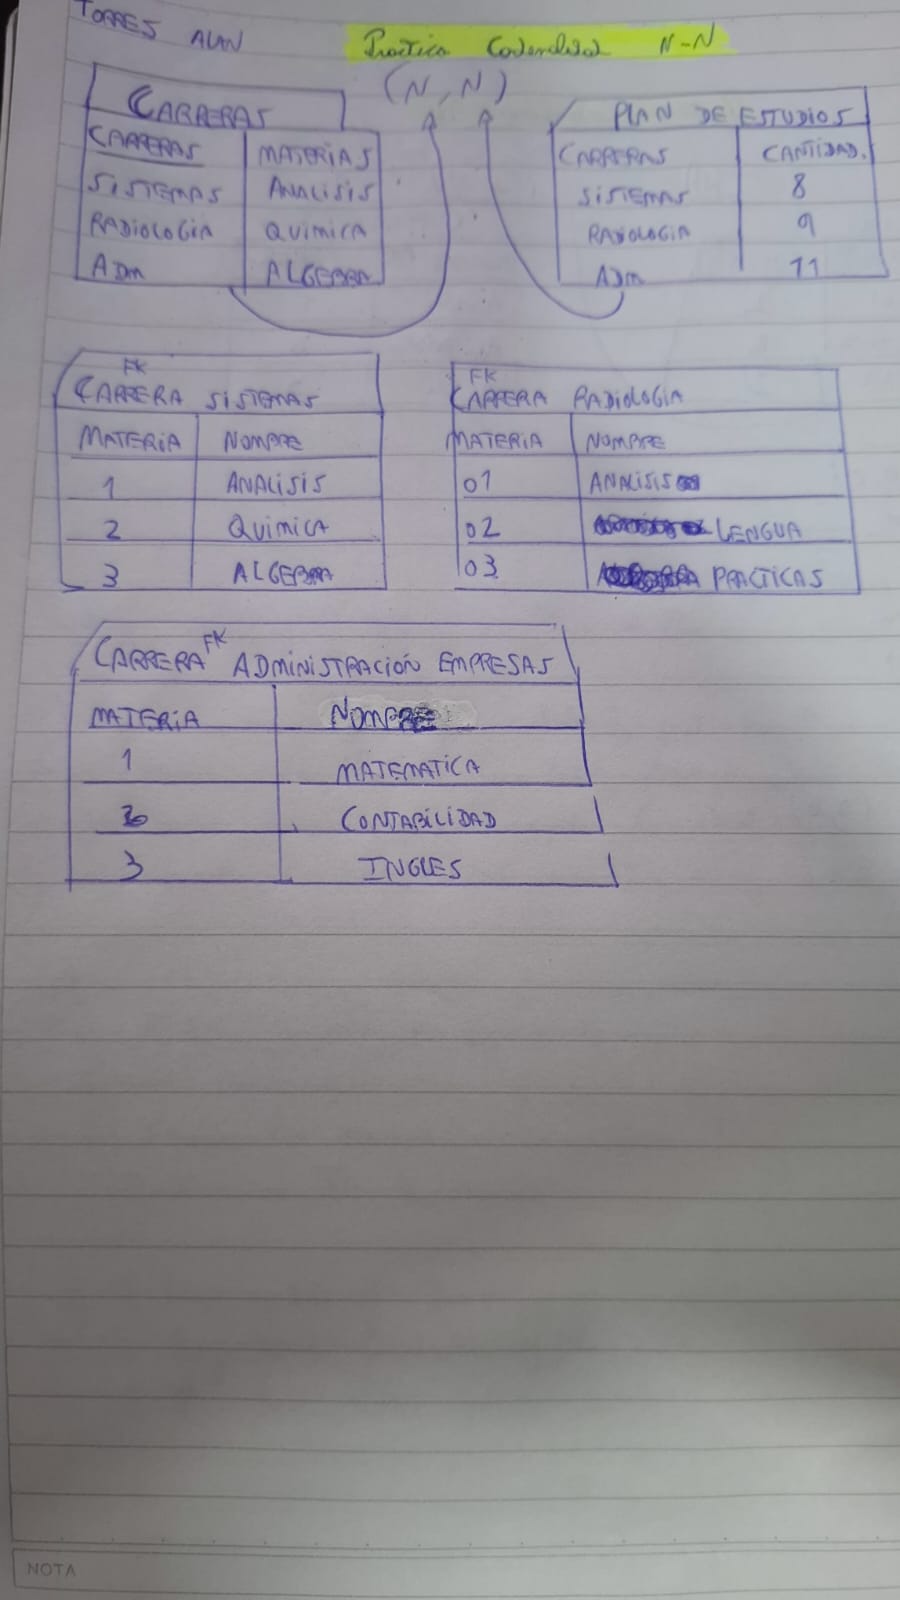 TORRES ALAN
Practica Cardinalidad N-N
(N, N)
CARRERAS
CARRERAS MATERIAS
SISTEMAS ANALISIS
RADIOLOGIA QUIMICA
ADM ALGEBRA
PLAN DE ESTUDIOS
CARRERAS CANTIDAD.
SISTEMAS 8
RADIOLOGIA 9
ADM 11
FK
CARRERA SISTEMAS
MATERIA NOMBRE
1 ANALISIS
2 QUIMICA
3 ALGEBRA
FK
CARRERA RADIOLOGIA
MATERIA NOMBRE
01 ANALISIS
02 LENGUA
03 PRACTICAS
CARRERA FK ADMINISTRACIÓN EMPRESAS
MATERIA NOMBRE
1 MATEMATICA
CONTABILIDAD
3 INGLES
NOTA